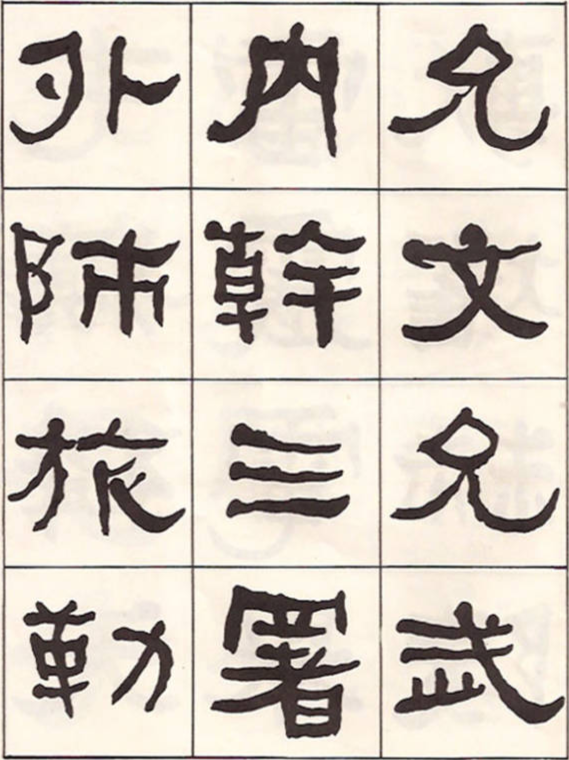 允文允武
内幹三署
外師旅勒